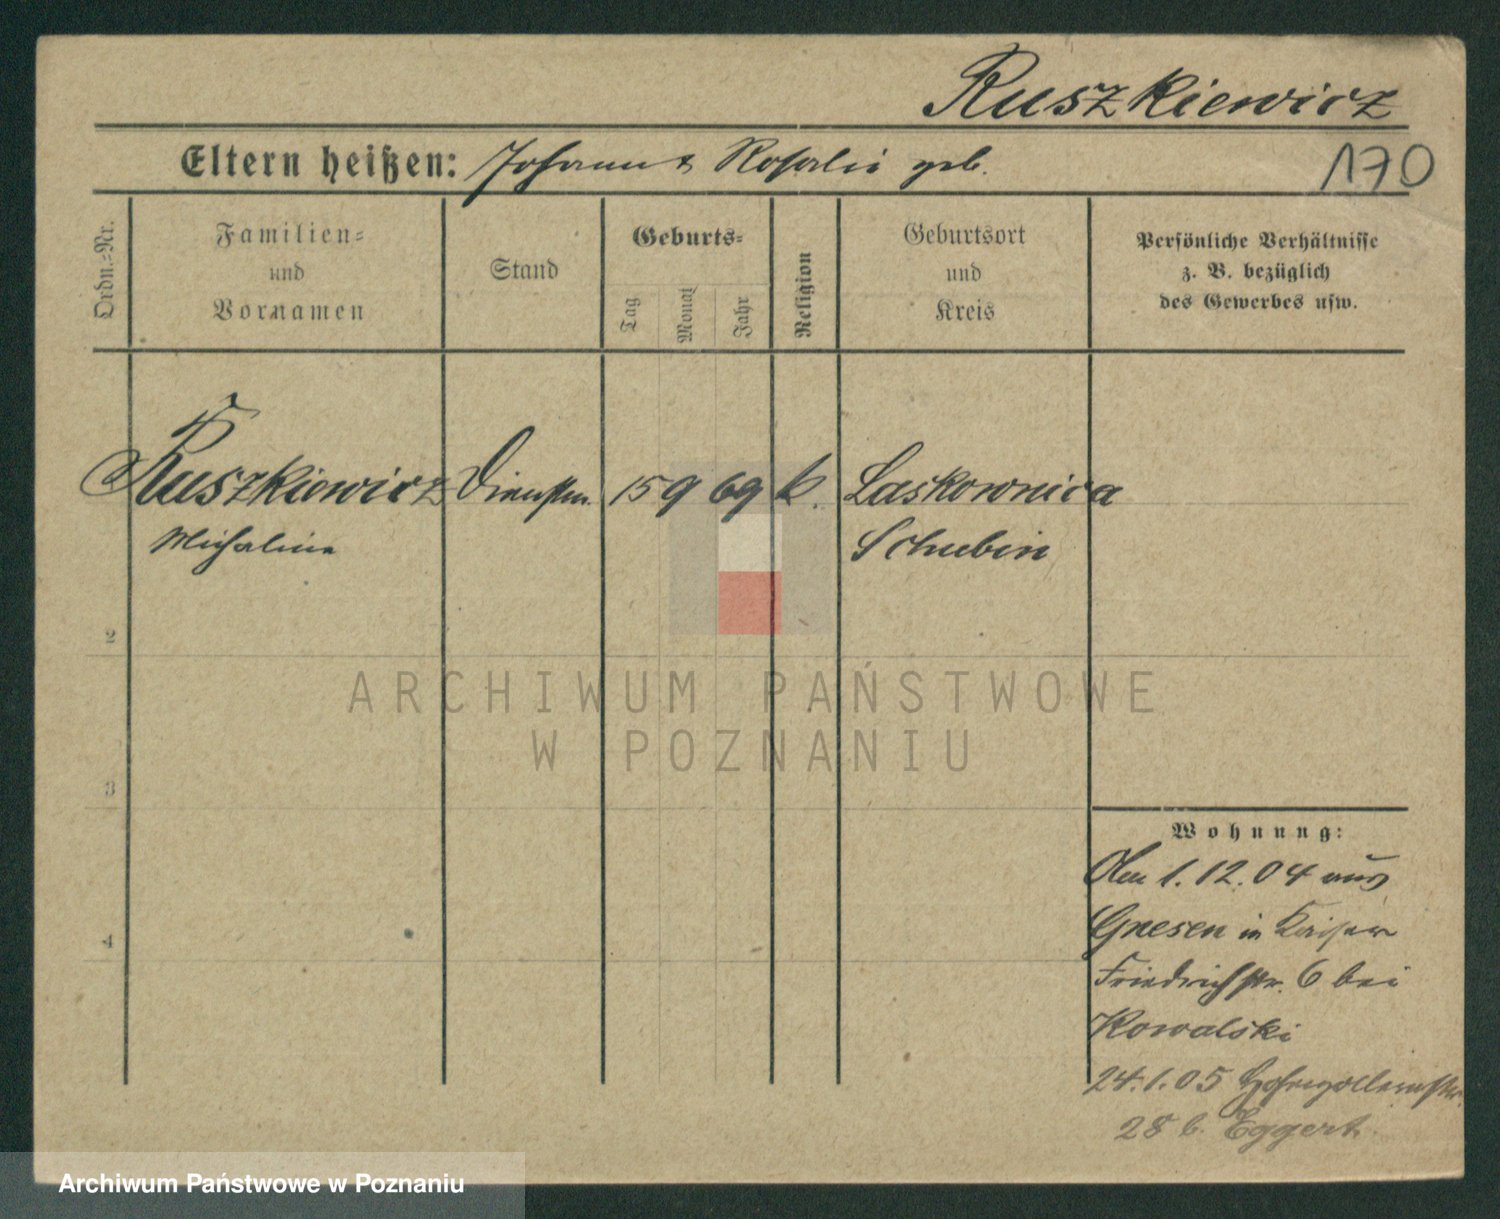 Ruszkiewicz
Eltern heißen: Johann & Rosalie geb.
170
Ordn.-Nr.
Familien-
und
Vornamen
Stand
Geburts-
Tag
Monat
Jahr
Religion
Geburtsort
und
Kreis
Persönliche Verhältnisse
z. B. bezüglich
des Gewerbes usw.
Ruszkiewicz Dienstm. 15 9 69 k. Laskownica
Michaline Schubin
2
ARCHIWUM PAŃSTWOWE
W POZNANIU
3
Wohnung:
Am 1.12.04 aus
4
Gnesen in Kaiser
Friedrichstr. 6 bei
Kowalski
24.1.05 Hohenzollernstr.
28 b. Eggert
Archiwum Państwowe w Poznaniu